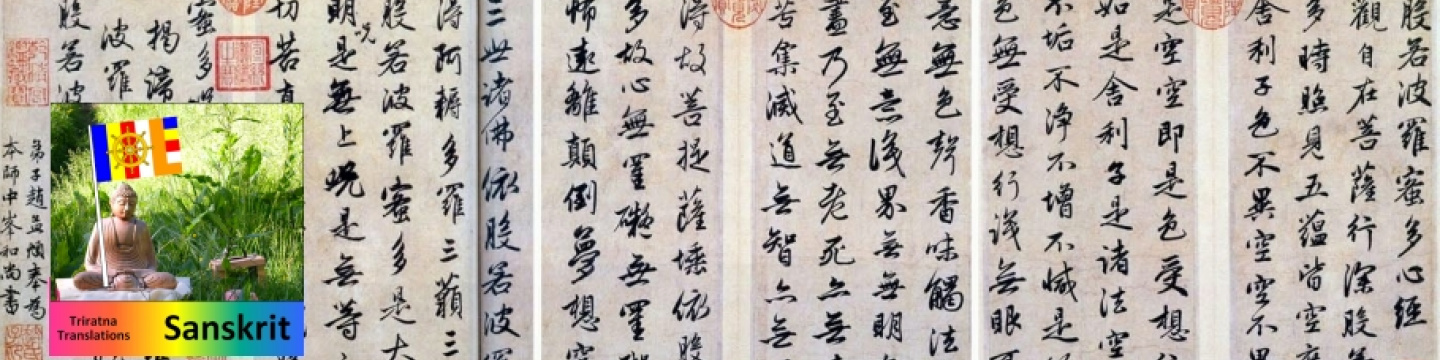 般若波羅蜜多心經
觀自在菩薩行深般
多時照見五蘊皆空
舍利子色不異空空不
是空空即是色受想
如是舍利子是諸法空
不垢不淨不增不減是
色無受想行識無眼
意無色聲香味觸法
至無意識界無無明
盡乃至無老死亦無
苦集滅道無智亦無
得故菩提薩埵依般
多故心無罣礙無罣
怖遠離顛倒夢想
三世諸佛依般若波
得阿耨多羅三藐三
般若波羅蜜多是大
明呪是無上呪是無等
切苦真
蜜多
揭諦
波羅
般若波
弟子趙孟頫奉為
本師中峯和尚書
Triratna
Translations
Sanskrit